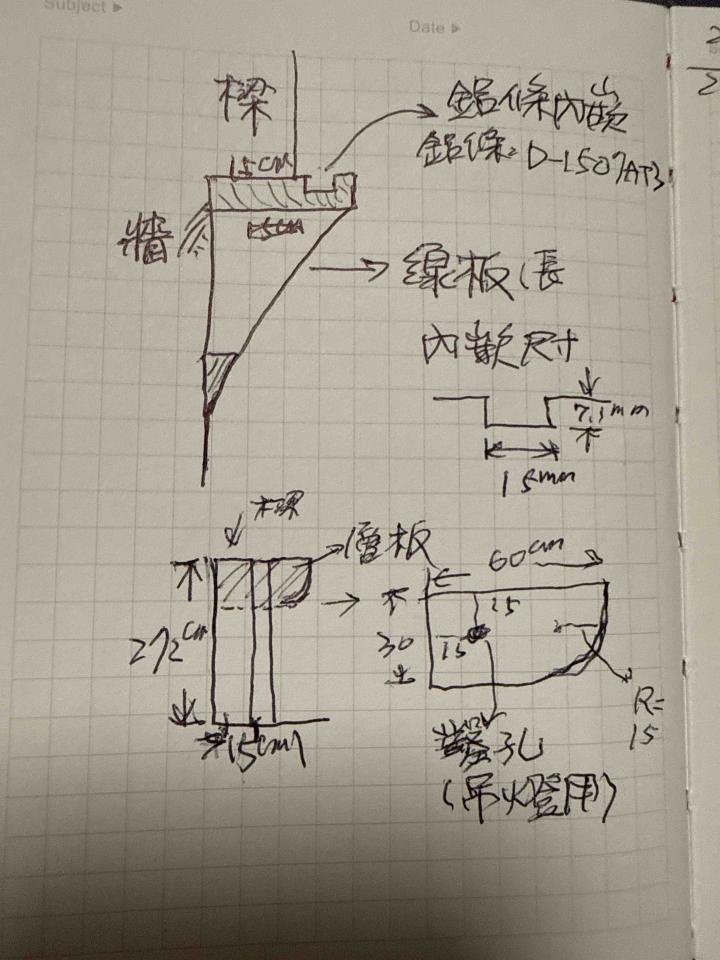 Subject ▶
Date ▶
樑
15cm
鋁條內嵌
鋁條: D-1507AT3
牆
線板(長
內嵌尺寸
7.1mm
15mm
樑
層板
60cm
272cm
30
15
15
15cm
R=
15
鑿孔
(吊燈用)
2
2